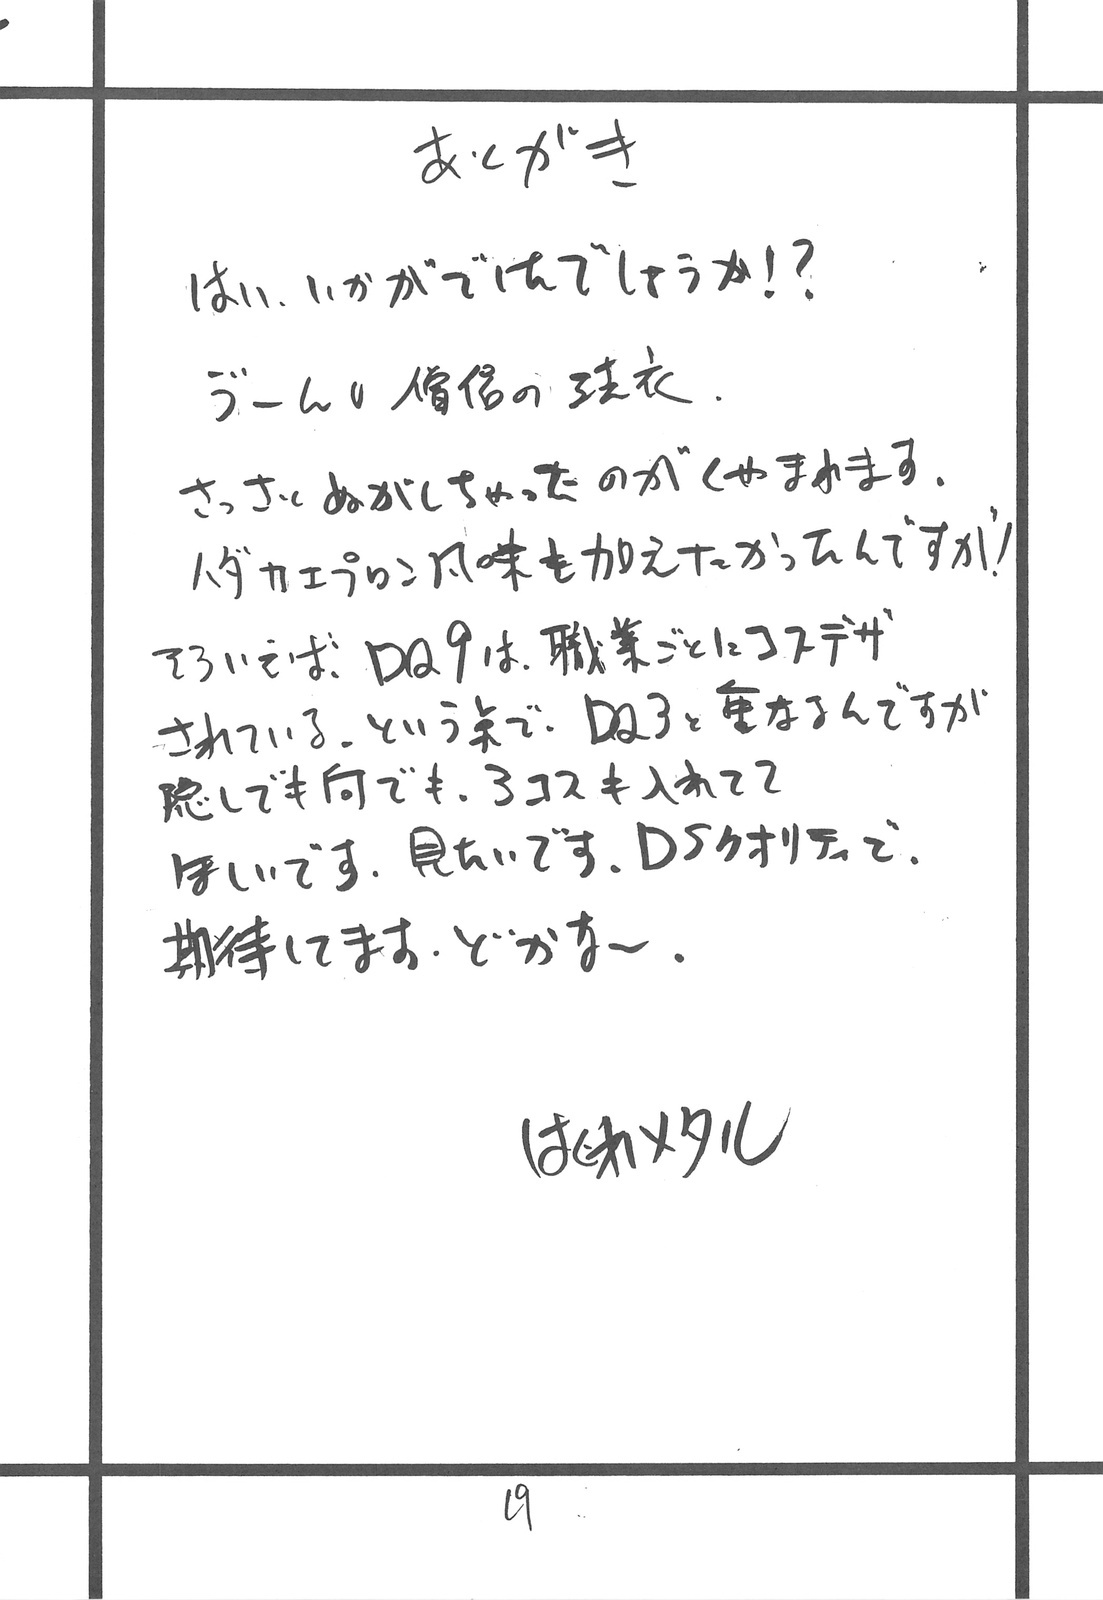 あとがき
はい、いかがでしたでしょうか!?
うーん 僧侶の 法衣.
さっさと ぬがしちゃったのがくやまれます.
ハダカエプロン風味も加えたかったんですが!
そういえば、DQ9は、職業ごとにコスデザ
されている.という点で、DQ3と重なるんですが
隠しでも何でも.3コスも入れてて
ほしいです.見たいです.DSクオリティで.
期待してます.どかな〜.
はぐれメタル
19